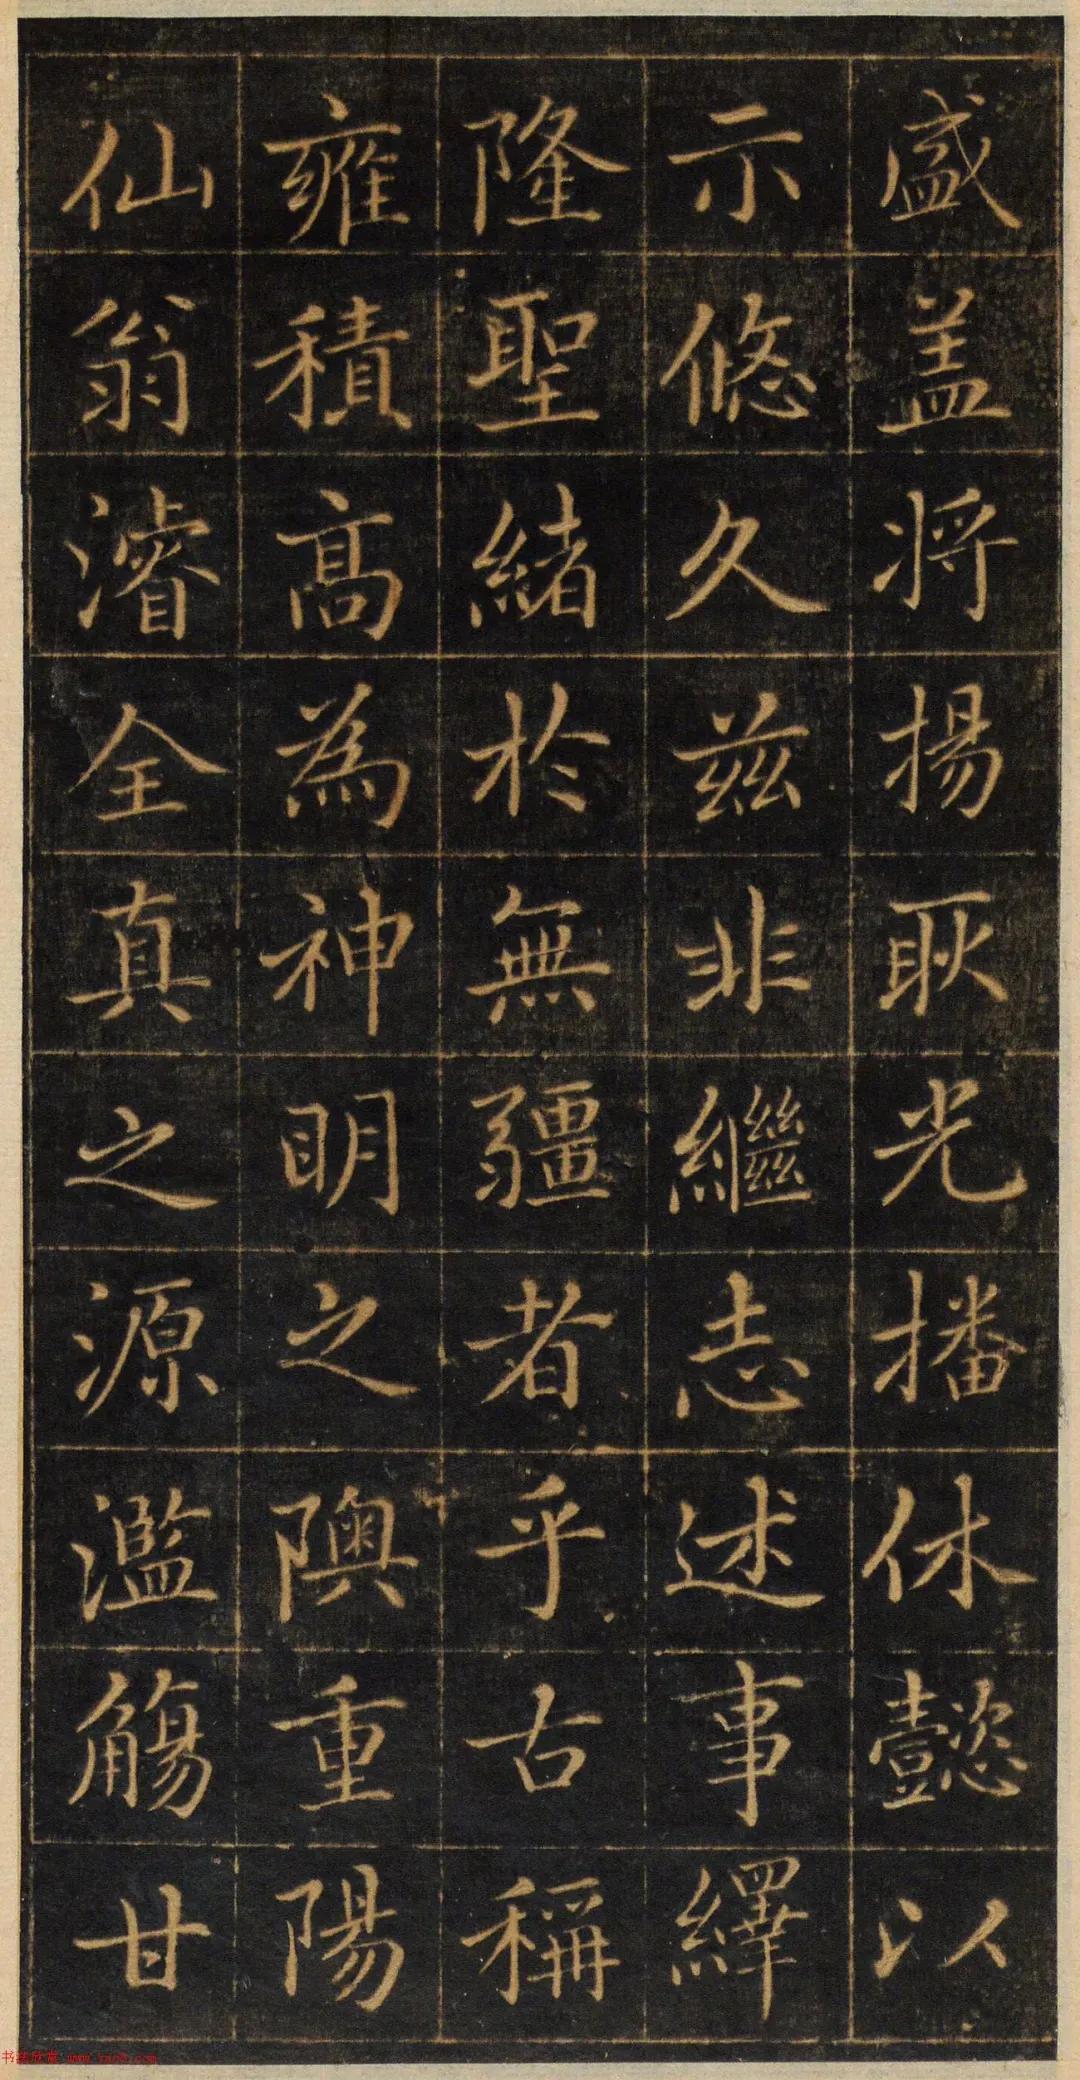 盛盖将揚耿光播休懿以
示悠久兹非繼志述事繹
隆聖緒於無疆者乎古稱
雍積高為神明之隩重陽
仙翁濬全真之源濫觴甘
www.yac8.com